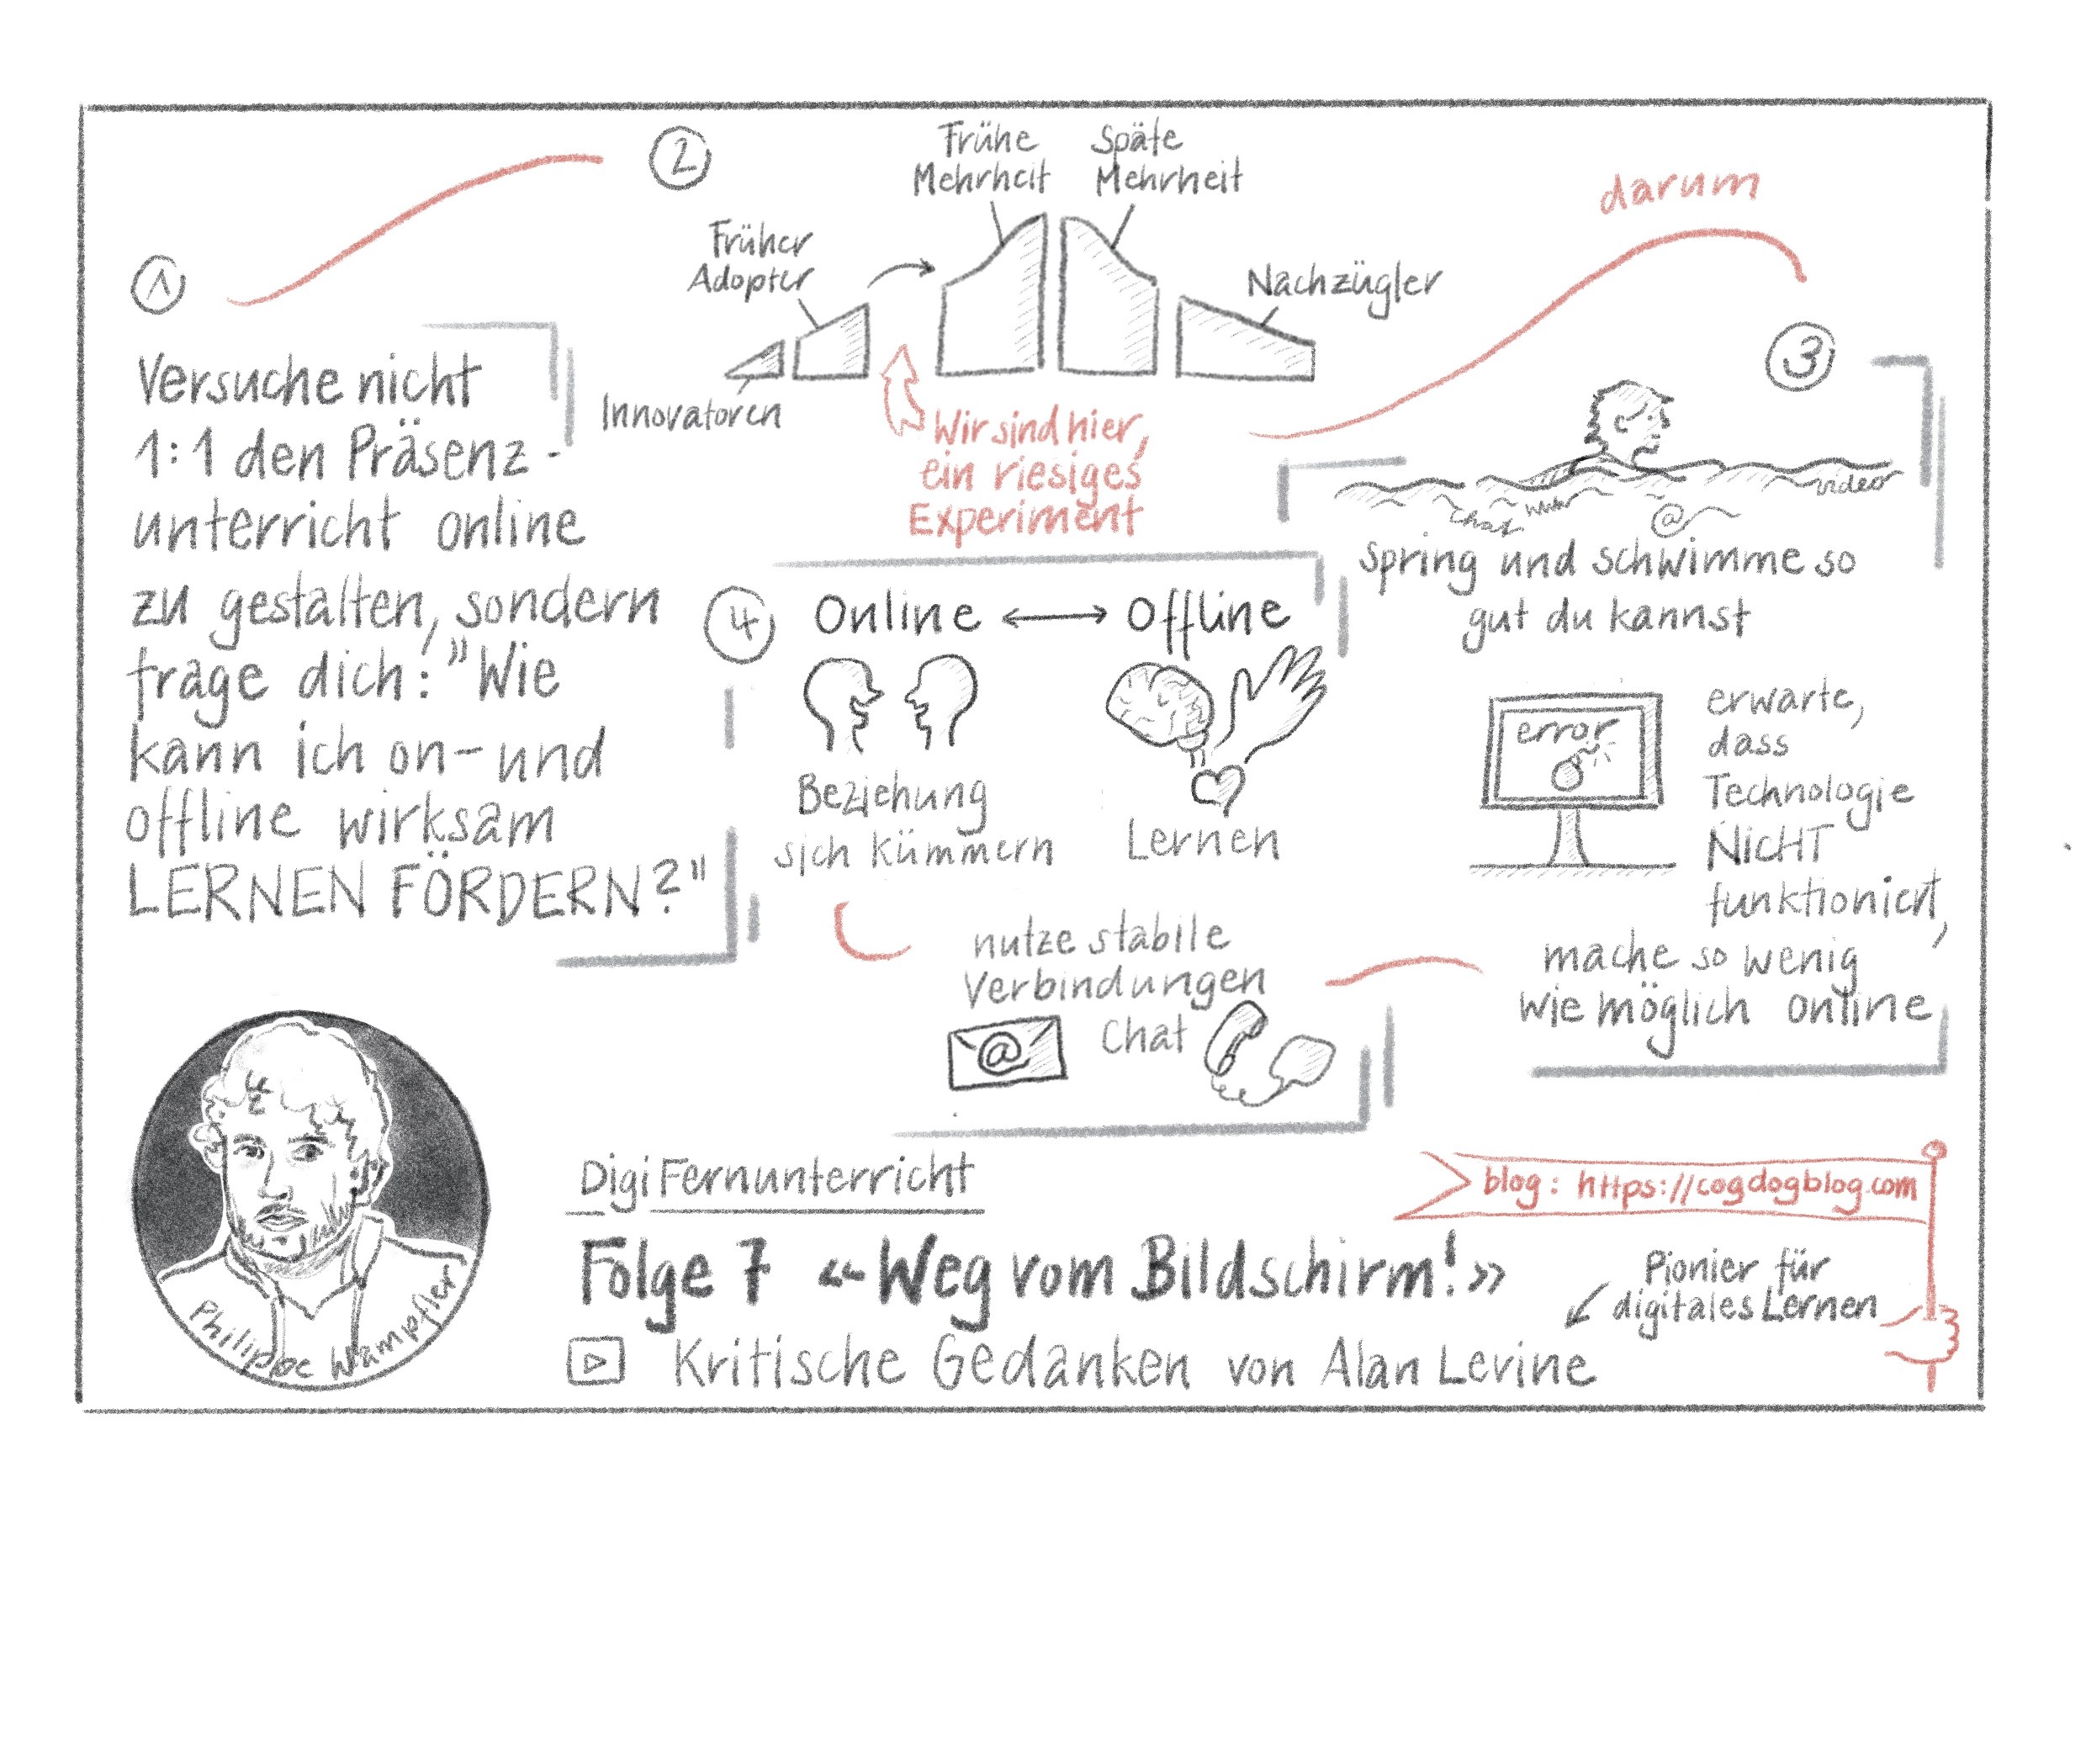 1
Versuche nicht
1:1 den Präsenz-
unterricht online
zu gestalten, sondern
frage dich: "Wie
kann ich on- und
offline wirksam
LERNEN FÖRDERN?"
2
Innovatoren
Früher
Adopter
Frühe
Mehrheit
Späte
Mehrheit
Nachzügler
Wir sind hier,
ein riesiges
Experiment
darum
3
Chat
www
@
video
spring und schwimme so
gut du kannst
error
erwarte,
dass
Technologie
NICHT
funktioniert,
mache so wenig
wie möglich online
4
Online ⟷ Offline
Beziehung
sich kümmern
Lernen
nutze stabile
Verbindungen
@
Chat
Philippe Wampfler
DigiFernunterricht
Folge 7 «Weg vom Bildschirm!»
Kritische Gedanken von Alan Levine
Pionier für
digitales Lernen
blog: https://cogdogblog.com